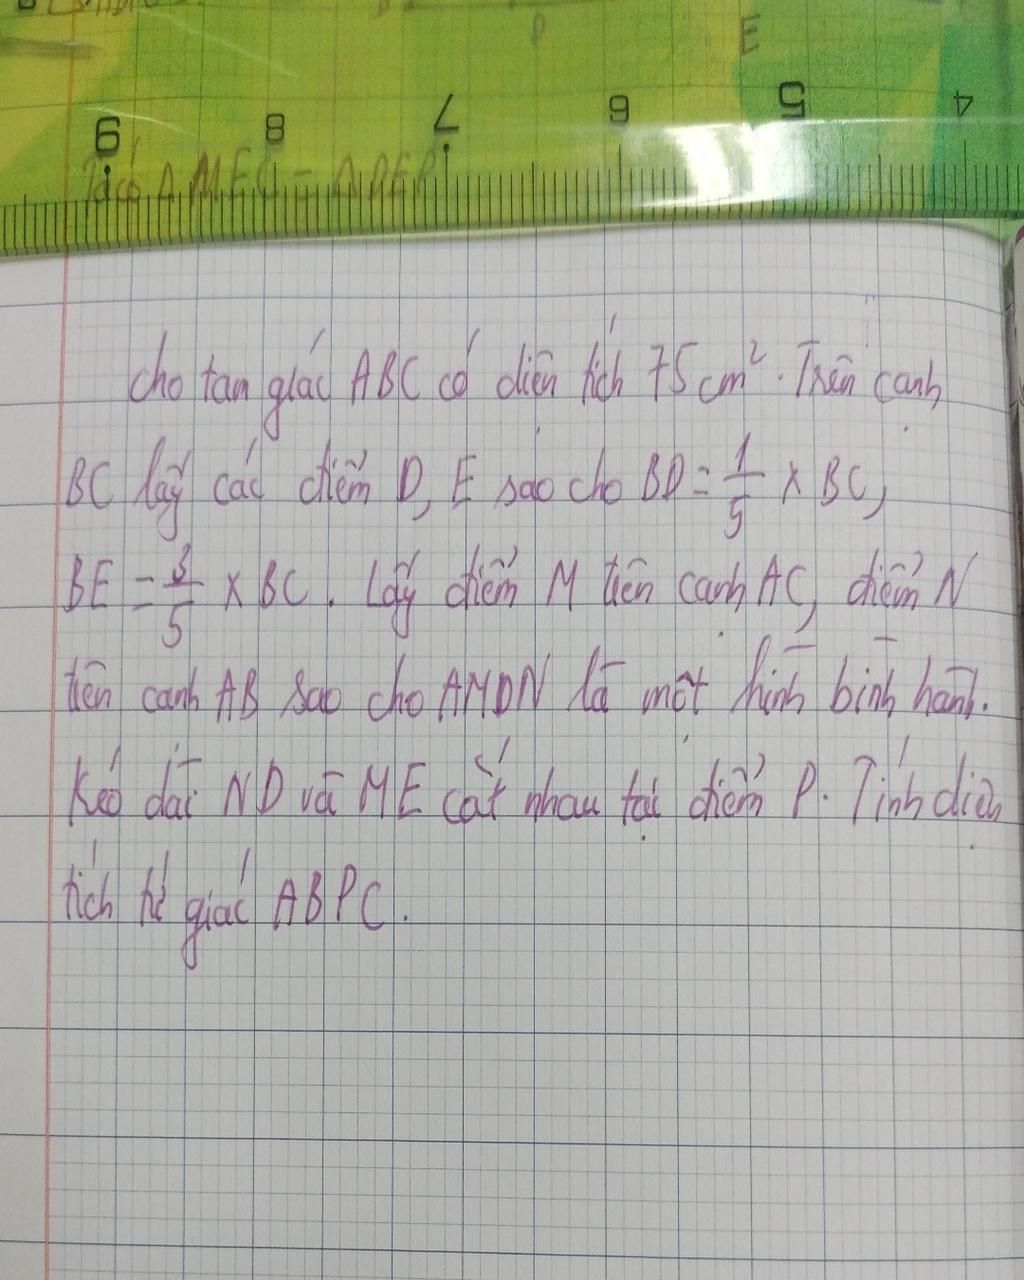 E
9 8 7 6 5 4
Ta có Δ MEC = Δ DEP
Cho tam giác ABC có diện tích 75 cm². Trên cạnh
BC lấy các điểm D, E sao cho BD = 1/5 × BC,
BE = 3/5 × BC. Lấy điểm M trên cạnh AC, điểm N
trên cạnh AB sao cho AMDN là một hình bình hành.
Kéo dài ND và ME cắt nhau tại điểm P. Tính diện
tích tứ giác ABPC.